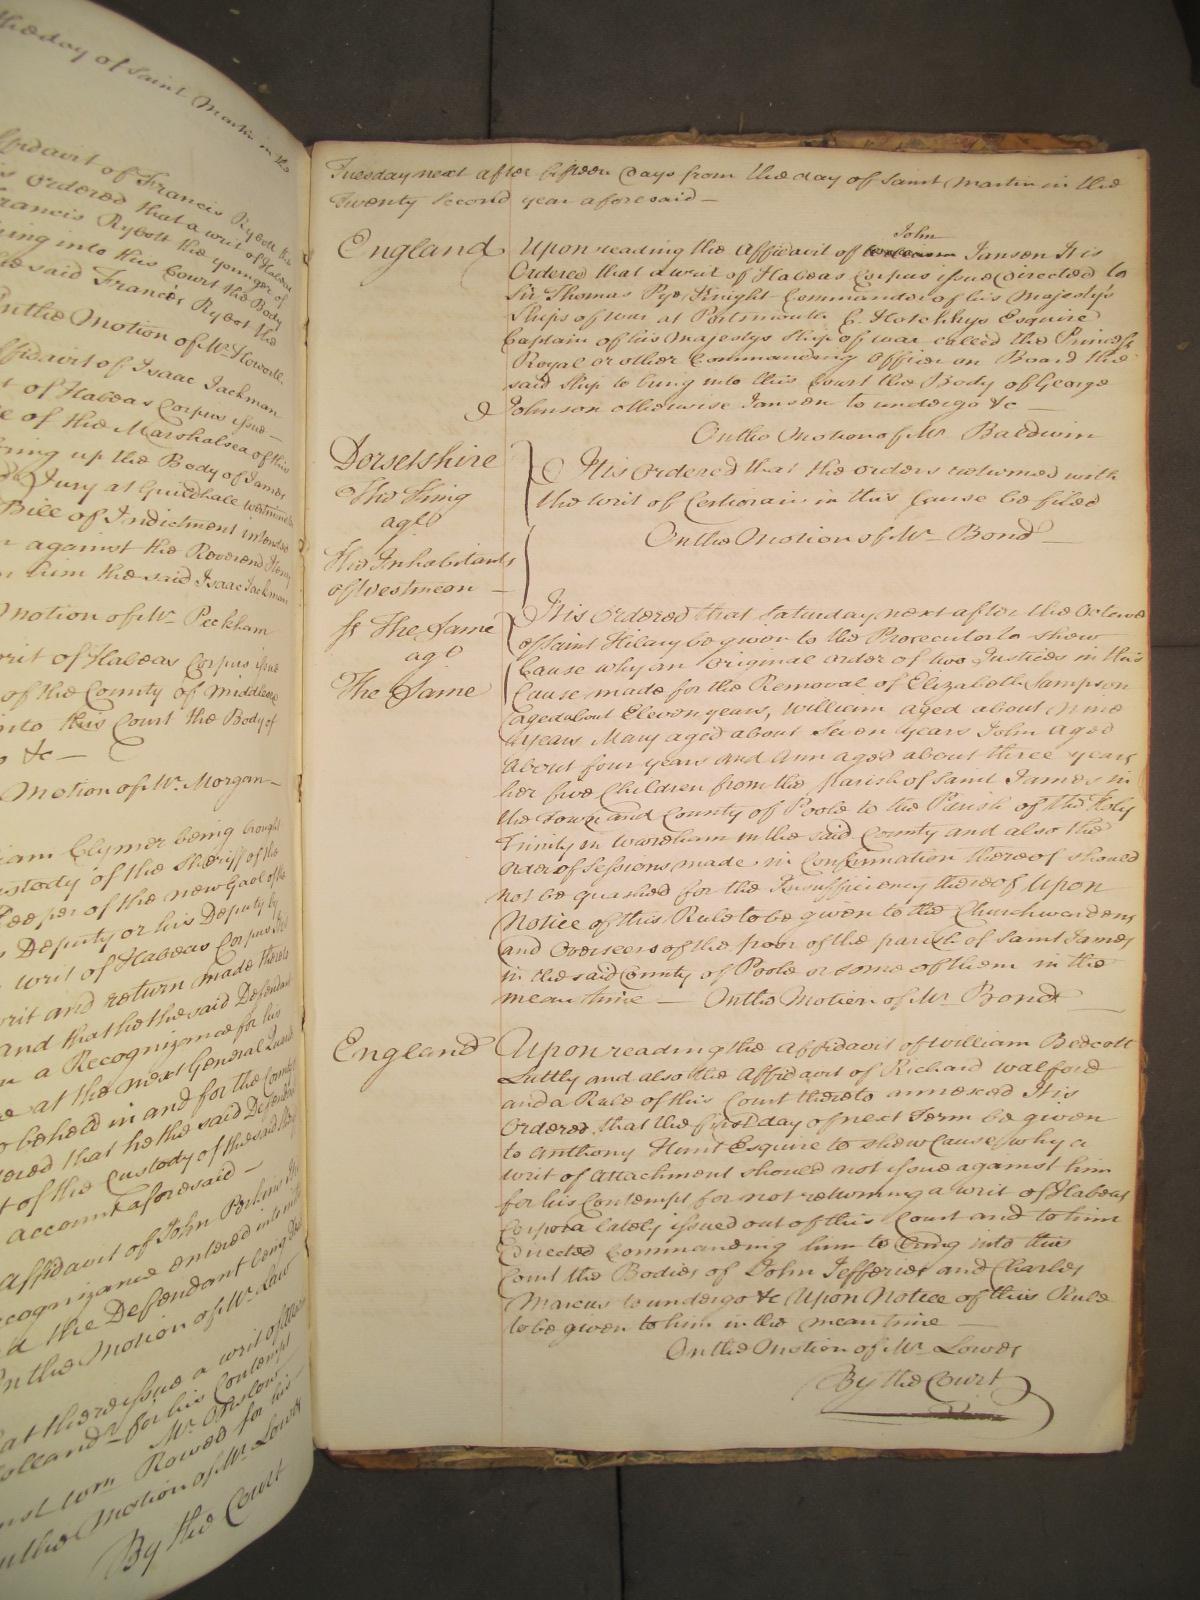 theday of Saint Martin in the
ffidavit of Francis Rybott the
is ordered that a writ of Habeas
Francis Rybott the younger of
ing into this Court the Body
the said Francis Rybot the
On the Motion of Mr. Howorth
ffidavit of Isaac Jackman
t of Habeas Corpus issue
e of the Marshalsea of this
ring up the Body of James
Jury at Guildhall Westminster
Bill of Indictment intended
n against the Reverend Henry
n him the said Isaac Jackman
Motion of Mr. Peckham
writ of Habeas Corpus issue
of the County of Middlesex
into this Court the Body of
o &c
Motion of Mr. Morgan
iam Clymer being brought
ustody of the Sheriff of the
Keeper of the new Gaol of the
Deputy or his Deputy by
writ of Habeas Corpus It is
writ and return made thereto
and that he the said Defendant
n a Recognizance for his
at the next General Quarter
o be held in and for the County
ered that he the said Defendant
t of the Custody of the said
account aforesaid
Affidavit of John Perkins
ecognizance entered into
the Defendant being
On the Motion of Mr. Law
at there issue a writ of
olland for his Contempt
Mr. Onslow
nst Wm. Rowed for his
n the Motion of Mr. Lowes
By the Court
Tuesday next after fifteen Days from the day of Saint Martin in the
Twenty Second year aforesaid
England
John
Upon reading the Affidavit of Jansen It is
Ordered that a writ of Habeas Corpus issue Directed to
Sir Thomas Pye Knight Commander of his Majesty's
Ships of war at Portsmouth C. Hotchkys Esquire
Captain of his Majestys Ship of war called the Princess
Royal or other Commanding Officer on Board the
said Ship to bring into this Court the Body of George
Johnson otherwise Jansen to undergo &c
On the Motion of Mr Baldwin
Dorsetshire
The King
agt
The Inhabitants
of Westmeon
It is ordered that the orders returned with
the writ of Certiorari in this Cause be filed
On the Motion of Mr. Bond
The Same
agt
The Same
It is ordered that Saturday next after the Octave
of Saint Hilary be given to the Prosecutor to shew
Cause why an original order of two Justices in this
Cause made for the Removal of Elizabeth Sampson
aged about Eleven years, William aged about Nine
years Mary aged about Seven years John aged
about four years and Ann aged about three years
her five Children from the Parish of Saint James in
the Town and County of Poole to the Parish of the Holy
Trinity in Wareham in the said County and also the
order of Sessions made in Confirmation thereof should
not be quashed for the Insufficiency thereof Upon
Notice of this Rule to be given to the Churchwardens
and Overseers of the poor of the parish of Saint James
in the said County of Poole or some of them in the
mean time — On the Motion of Mr Bond
England
Upon reading the Affidavit of William Bedcott
Luttly and also the Affidavit of Richard Walford
and a Rule of this Court thereto annexed It is
Ordered that the first day of next Term be given
to Anthony Hunt Esquire to shew Cause why a
writ of Attachment should not issue against him
for his Contempt for not returning a writ of Habeas
Corpora lately issued out of this Court and to him
Directed Commanding him to bring into this
Court the Bodies of John Jefferies and Charles
Marcus to undergo &c Upon Notice of this Rule
to be given to him in the mean time
On the Motion of Mr Lowes
By the Court